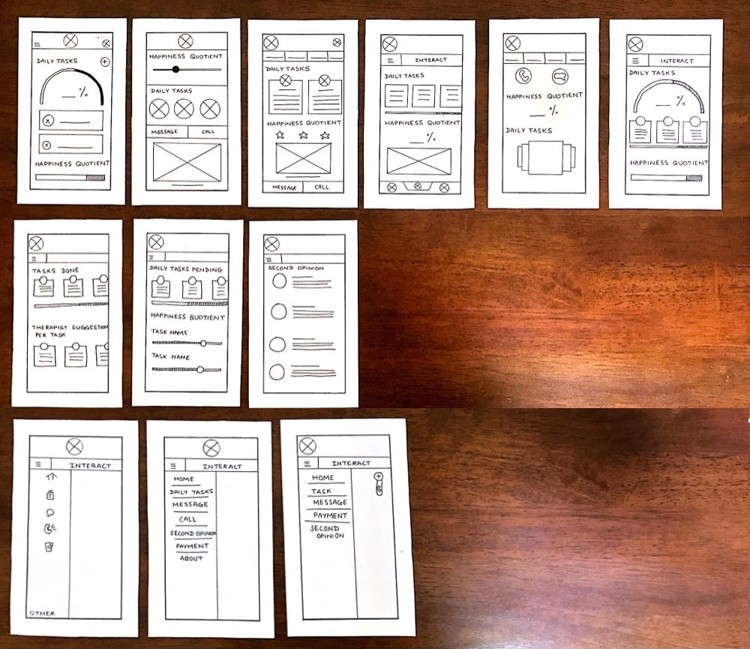 DAILY TASKS
__ %
HAPPINESS QUOTIENT
HAPPINESS QUOTIENT
DAILY TASKS
MESSAGE CALL
DAILY TASKS
HAPPINESS QUOTIENT
MESSAGE CALL
INTERACT
DAILY TASKS
HAPPINESS QUOTIENT
__ %
HAPPINESS QUOTIENT
__ %
DAILY TASKS
INTERACT
DAILY TASKS
__ %
HAPPINESS QUOTIENT
TASKS DONE
THERAPIST SUGGESTION
PER TASK
DAILY TASKS PENDING
HAPPINESS QUOTIENT
TASK NAME
TASK NAME
SECOND OPINION
INTERACT
OTHER
INTERACT
HOME
DAILY TASKS
MESSAGE
CALL
SECOND OPINION
PAYMENT
ABOUT
INTERACT
HOME
TASK
MESSAGE
PAYMENT
SECOND
OPINION